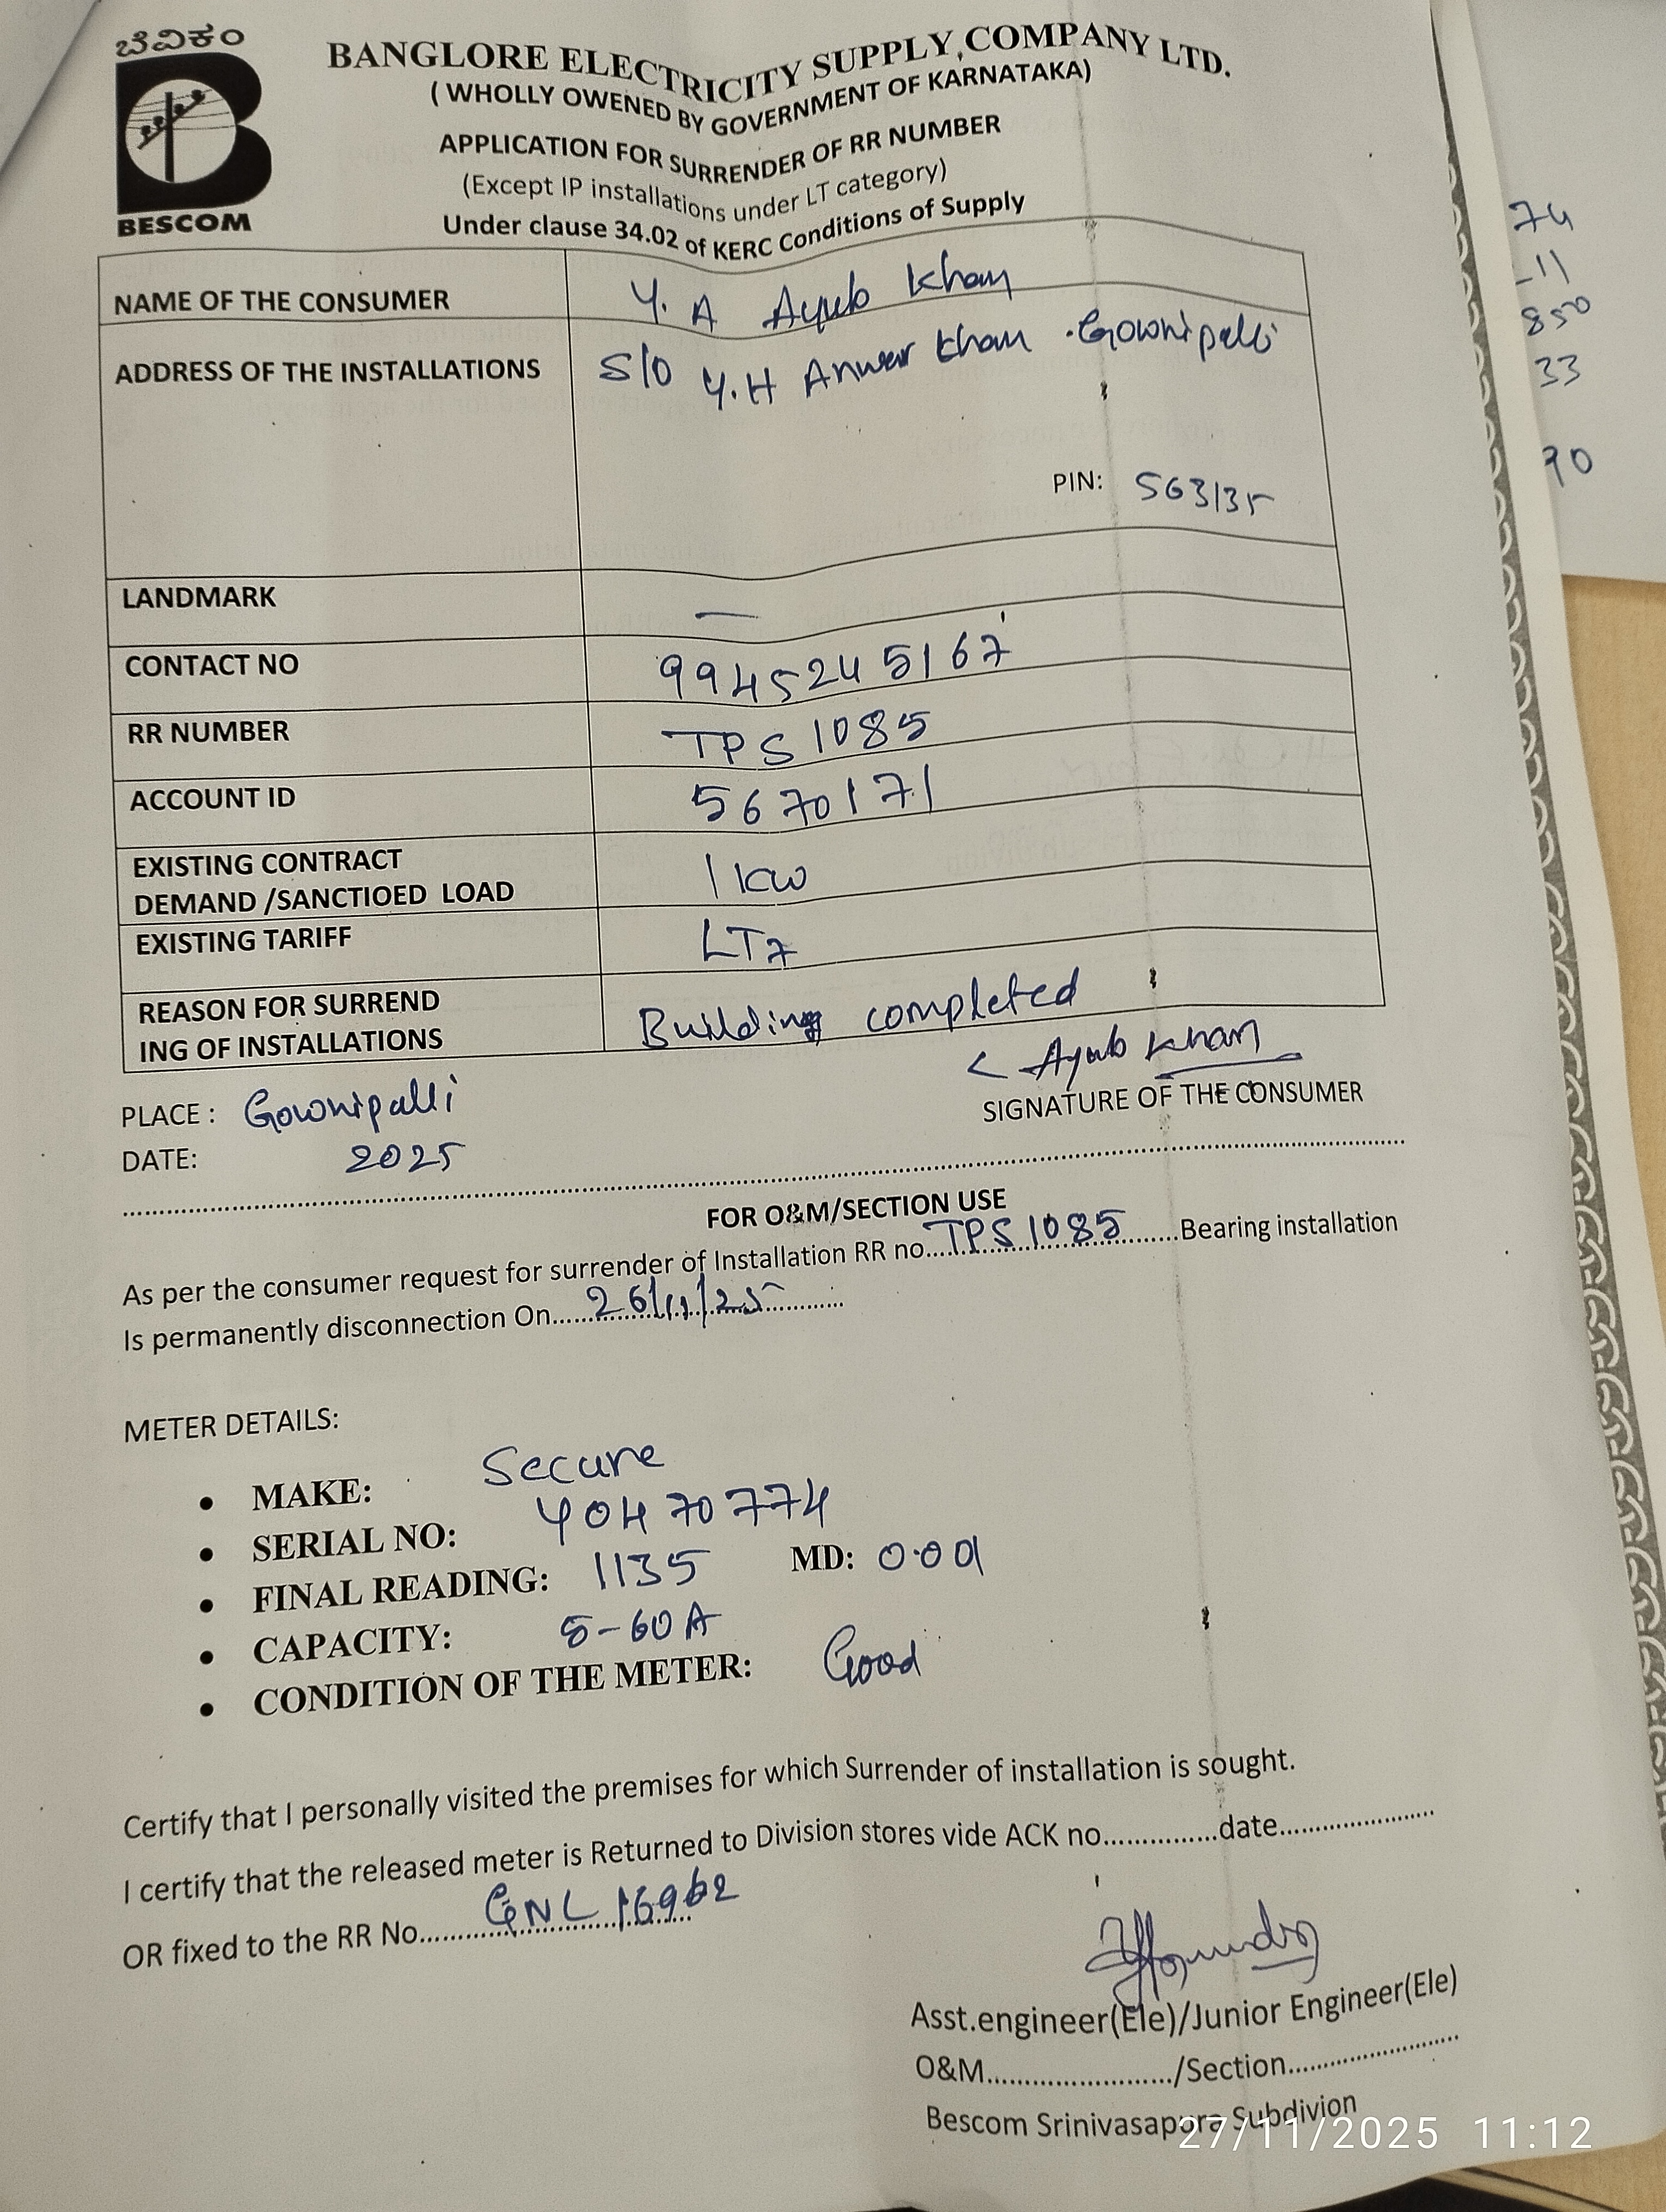 ಬೆವಿಕಂ
BESCOM
BANGLORE ELECTRICITY SUPPLY COMPANY LTD.
( WHOLLY OWENED BY GOVERNMENT OF KARNATAKA)
APPLICATION FOR SURRENDER OF RR NUMBER
(Except IP installations under LT category)
Under clause 34.02 of KERC Conditions of Supply
NAME OF THE CONSUMER Y. A Ayub Khan
ADDRESS OF THE INSTALLATIONS S/O Y.H Anwar Khan Gownipalli
PIN: 563135
LANDMARK —
CONTACT NO 9945245167
RR NUMBER TPS 1085
ACCOUNT ID 5670171
EXISTING CONTRACT
DEMAND /SANCTIOED LOAD 1 KW
EXISTING TARIFF LT7
REASON FOR SURREND
ING OF INSTALLATIONS Building completed
Ayub Khan
PLACE : Gownipalli SIGNATURE OF THE CONSUMER
DATE: 2025
FOR O&M/SECTION USE
As per the consumer request for surrender of Installation RR no....TPS 1085....Bearing installation
Is permanently disconnection On....26/11/25....
METER DETAILS:
• MAKE: Secure
• SERIAL NO: Y0470774
• FINAL READING: 1135 MD: 0.001
• CAPACITY: 5-60A
• CONDITION OF THE METER: Good
Certify that I personally visited the premises for which Surrender of installation is sought.
I certify that the released meter is Returned to Division stores vide ACK no...............date......................
OR fixed to the RR No....GNL 16962
Asst.engineer(Ele)/Junior Engineer(Ele)
O&M......................./Section......................
Bescom Srinivasapura Subdivion
27/11/2025 11:12
74
-11
850
33
90